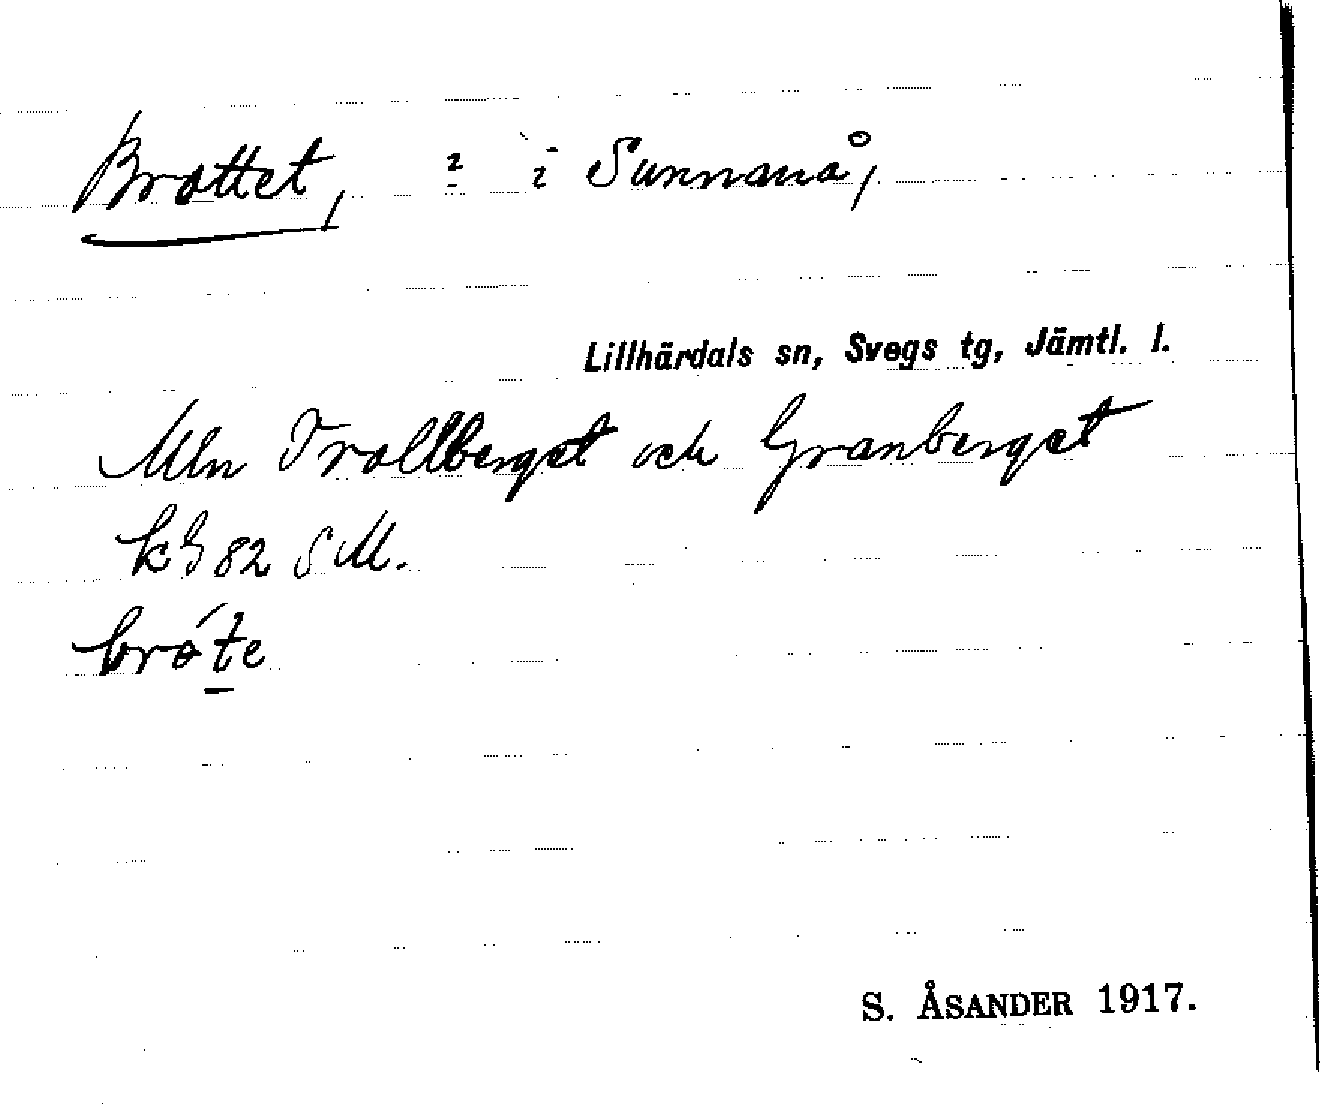 Brottet, i Sunnanå,
Lillhärdals sn, Svegs tg, Jämtl. l.
Mln Trollberget och Granberget
82 S M.
bróte
S. ÅSANDER 1917.